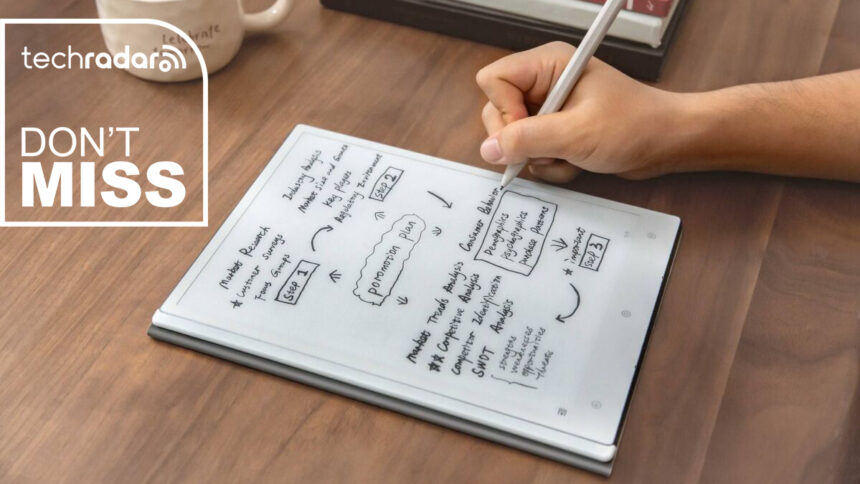 techradar
DON'T
MISS
Celebrate
Market Research
* Customer Surveys
Focus Groups
Step 1
Industry Analysis
Market size and
Key players
Regulatory Environment
Step 2
poromotion plan
Consumer Behavior
Demographics
Psychographics
purchase Patterns
* important
Step 3
Market Trends Analysis
** Competitive Analysis
Competitor Identification
SWOT Analysis
strengths
weaknesses
opportunities
threats